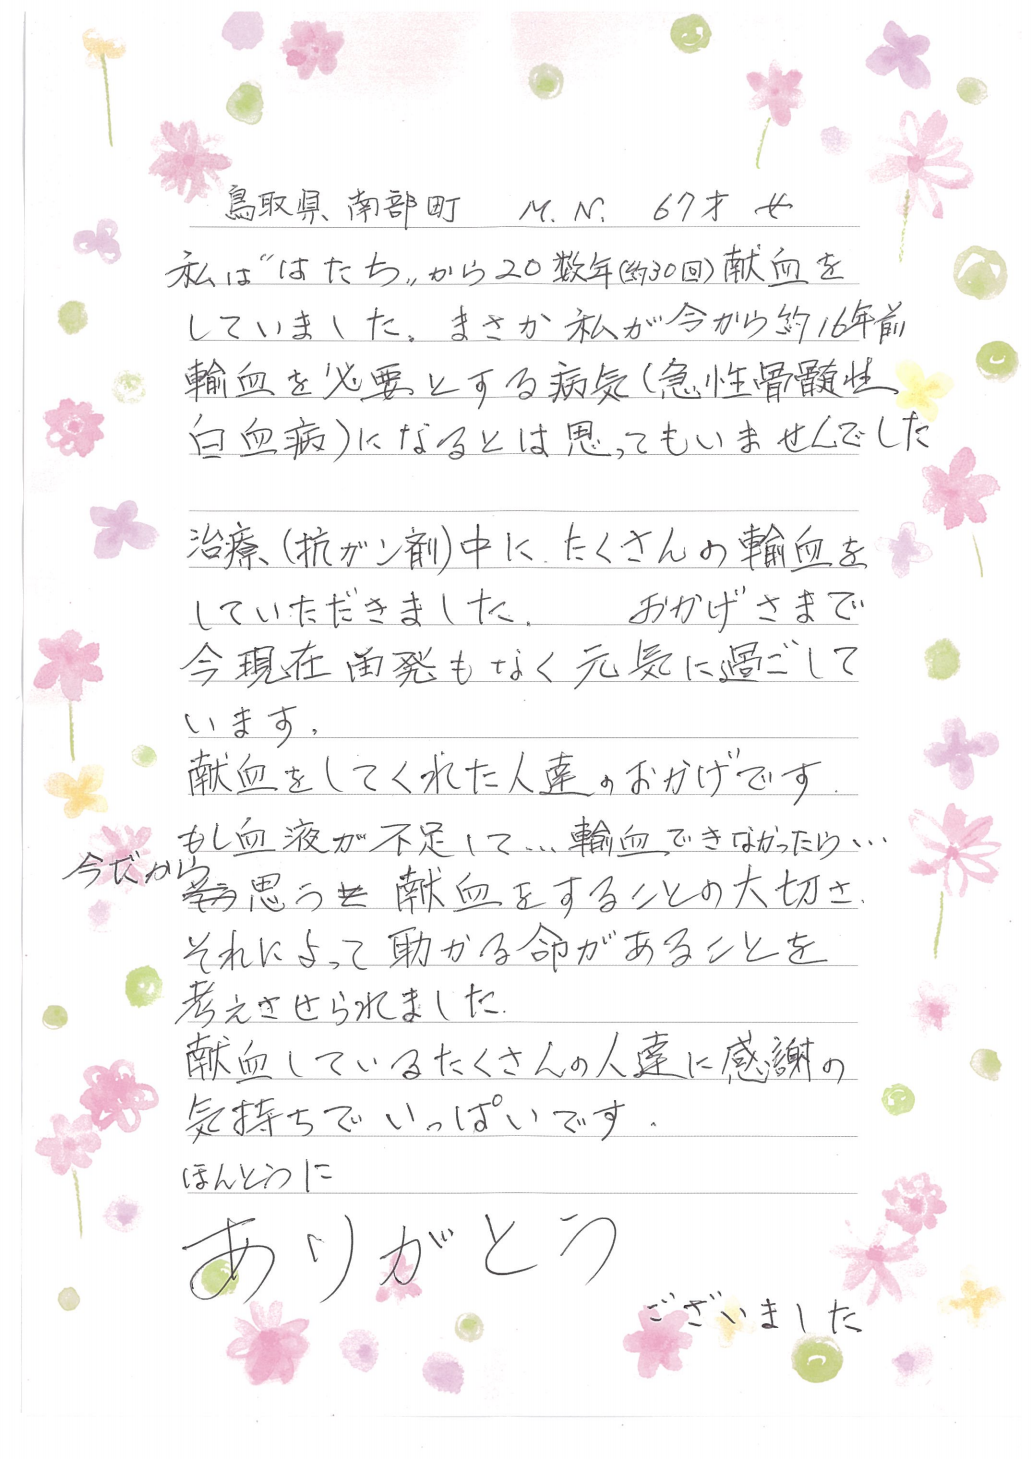 鳥取県南部町 M.N. 67才 女
私は"はたち"から20数年(約30回)献血を
していました。まさか私が今から約16年前
輸血を必要とする病気(急性骨髄性
白血病)になるとは思ってもいませんでした
治療(抗ガン剤)中に、たくさんの輸血を
していただきました。 おかげさまで
今現在再発もなく元気に過ごして
います。
献血をしてくれた人達のおかげです。
もし血液が不足して…輸血できなかったら…
今だから思う 献血をすることの大切さ、
それによって助かる命があることを
考えさせられました。
献血しているたくさんの人達に感謝の
気持ちでいっぱいです。
ほんとうに
ありがとう
ございました